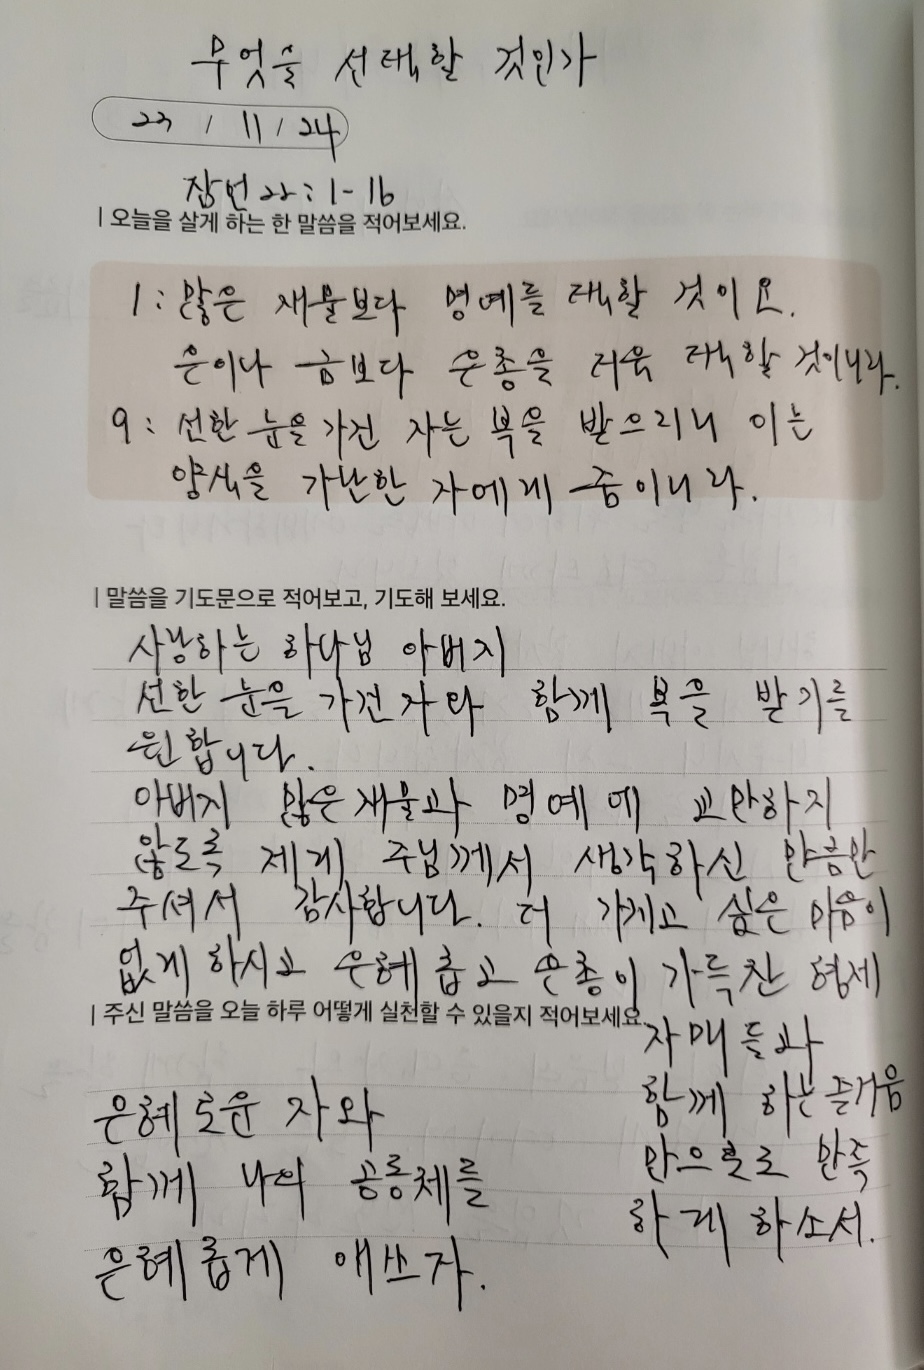 무엇을 선택할 것인가
23 / 11 / 24
잠번 22 : 1 - 16
| 오늘을 살게 하는 한 말씀을 적어보세요.
1 : 많은 재물보다 명예를 택할 것이요.
은이나 금보다 은총을 더욱 택할 것이니라.
9 : 선한 눈을 가진 자는 복을 받으리니 이는
양식을 가난한 자에게 줌이니라.
| 말씀을 기도문으로 적어보고, 기도해 보세요.
사랑하는 하나님 아버지
선한 눈을 가진 자와 함께 복을 받기를
원합니다.
아버지 많은 재물과 명예에 교만하지
않도록 제게 주님께서 생각하신 만큼만
주셔서 감사합니다. 더 가지고 싶은 마음이
없게 하시고 은혜롭고 은총이 가득찬 형제
자매들과
함께 하는 즐거움
만으로 만족
하게 하소서.
| 주신 말씀을 오늘 하루 어떻게 실천할 수 있을지 적어보세요.
은혜로운 자와
함께 나의 공동체를
은혜롭게 애쓰자.